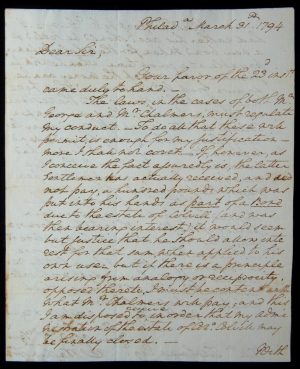 Philad.ª March 31st 1794
Dear Sir,
Your favor of the 22d inst
came duly to hand. —
The laws, in the cases of both Mr.
George and Mr. Chalmers, must regulate
my conduct. — To do all that these wch
permit, is enough for my justification —
more I shall not covet. — If however as
I conceive the fact assuredly is, the latter
Gentleman actually received, and did
not pay, a hundred pounds which was
put into his hands as part of a Bond
due to the estate of Colvill, (and was
then bearing interest) it would seem
but justice that he should allow inte
rest for that sum when applied to his
own uses; but if there is a principle
arising from law or reciprocity
opposed thereto, I must be content with
what Mr. Chalmers will pay; and this
I am disposed to receive, in order that my admi
nistration of the estate of Colvill may
be finally closed. —
With